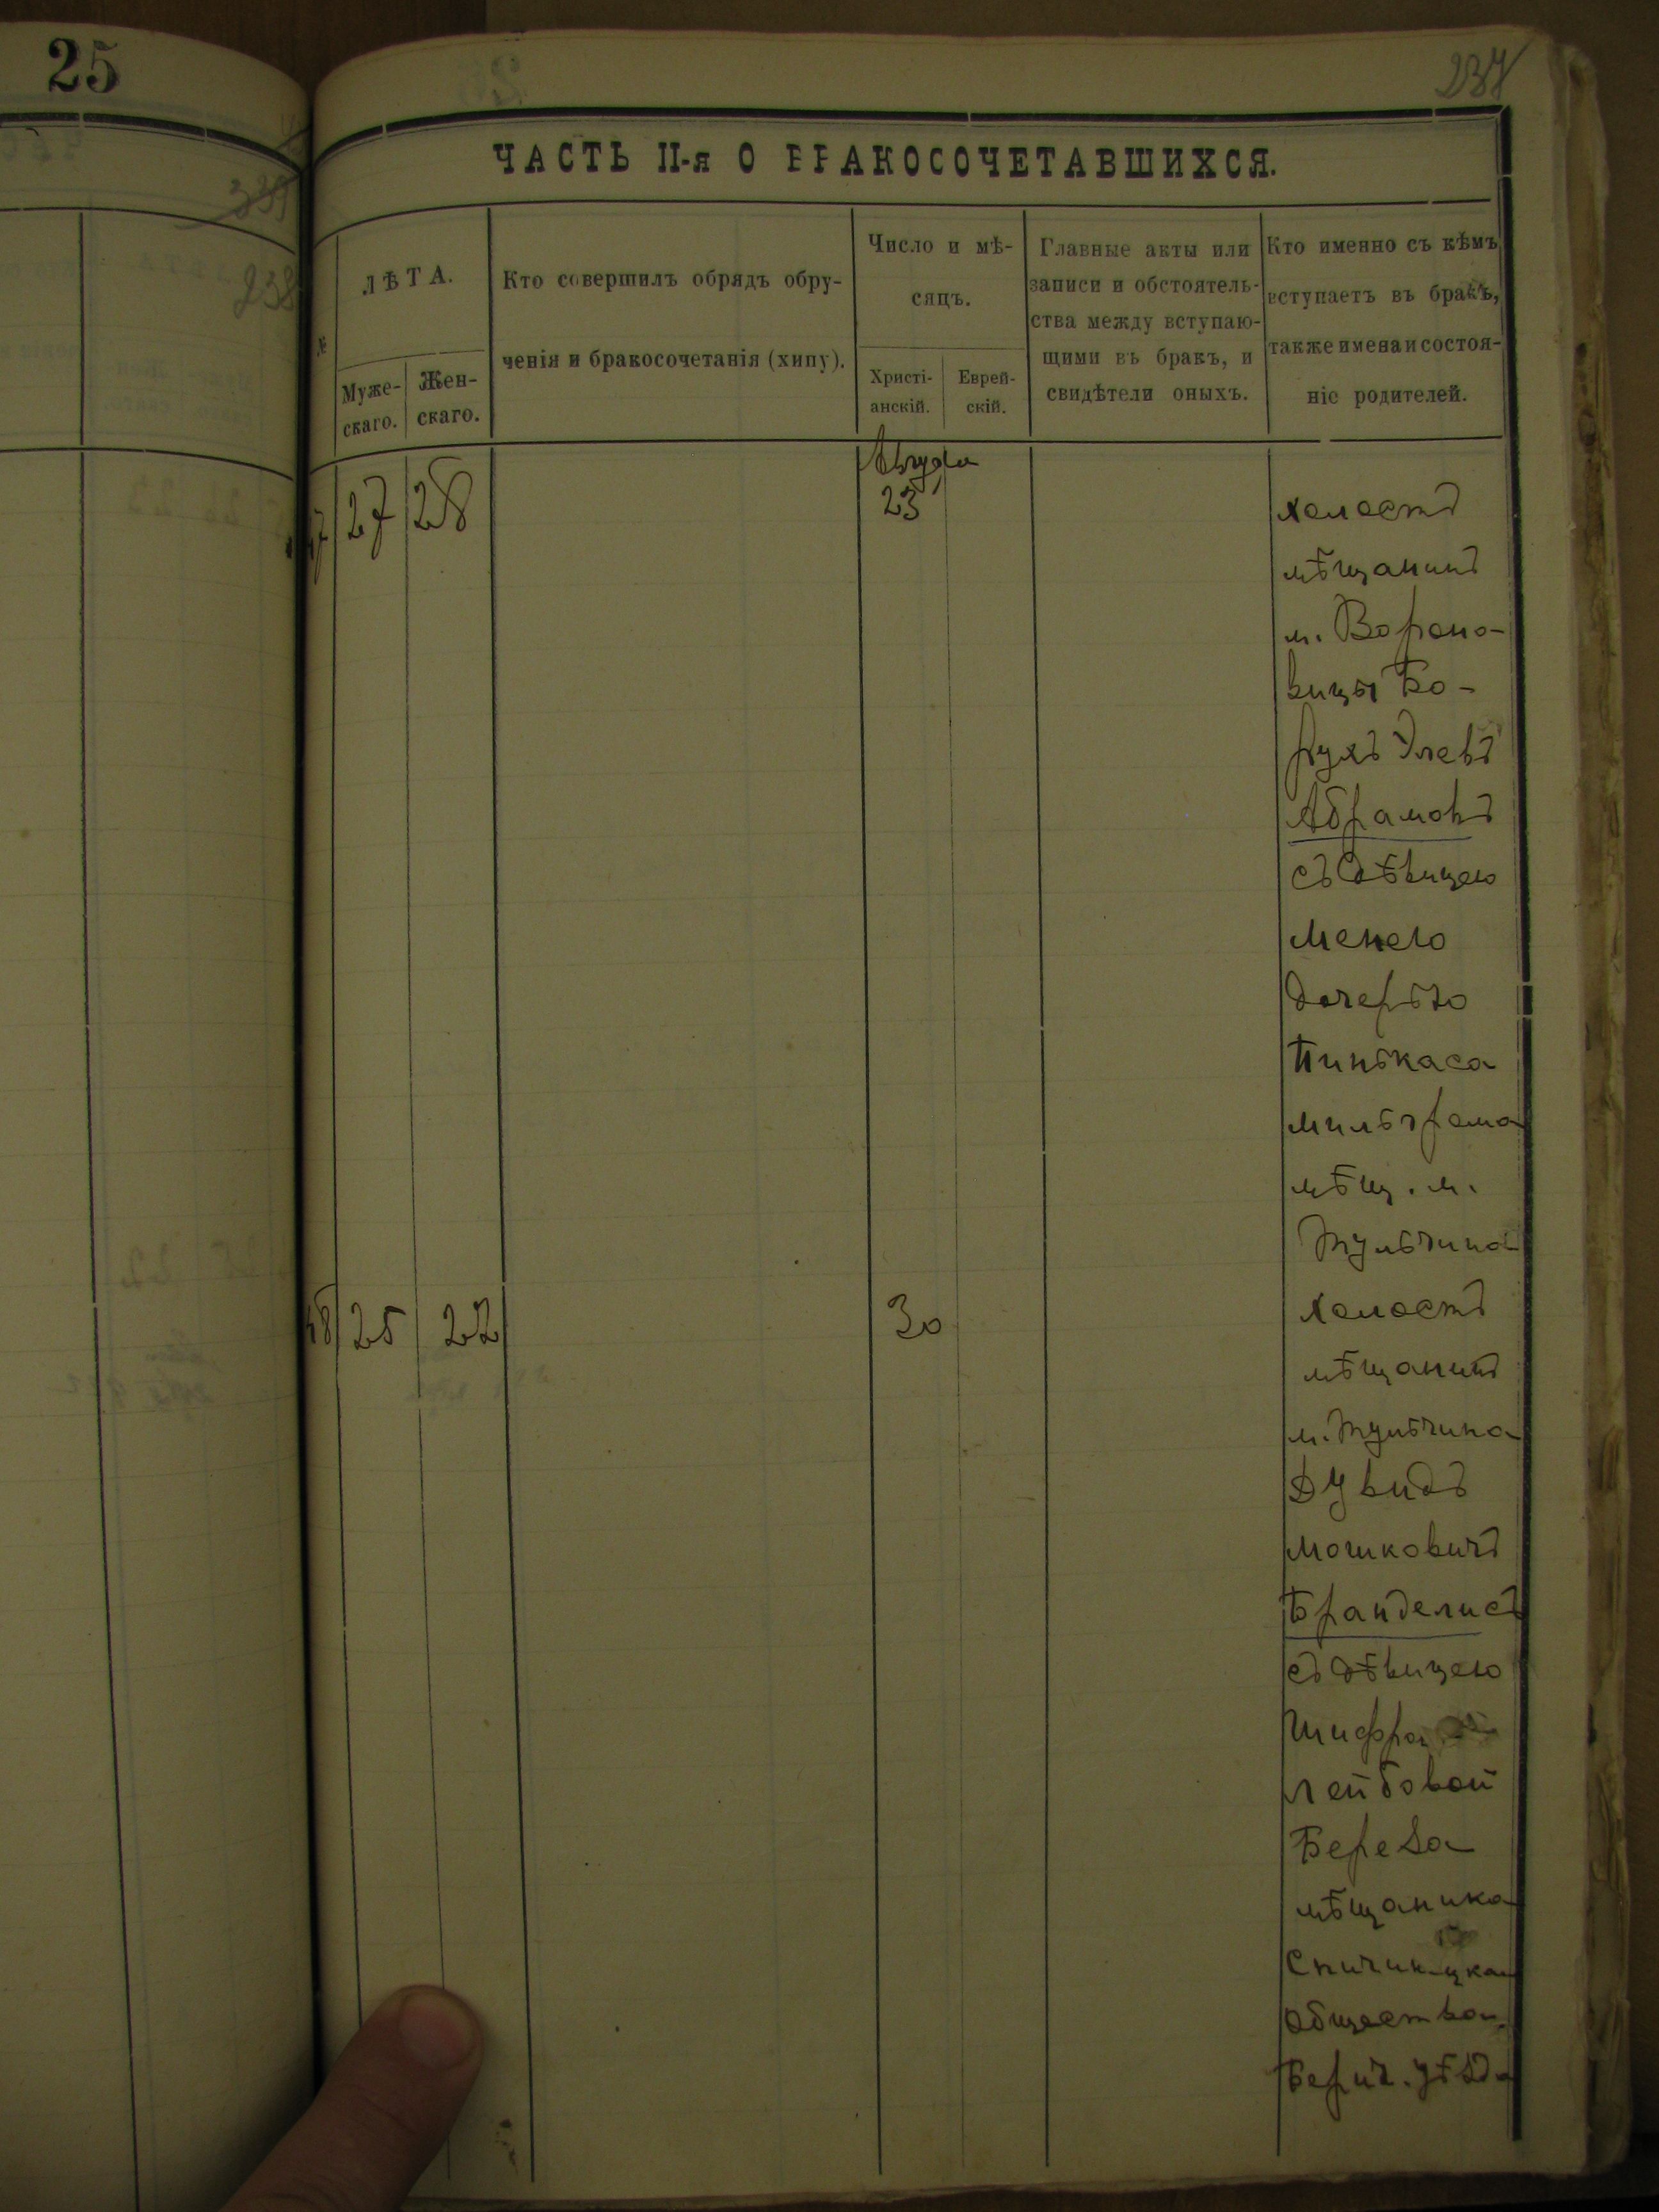 25
237
339
238
ЧАСТЬ II-я О БРАКОСОЧЕТАВШИХСЯ.
№
ЛѢТА.
Муже-
скаго.
Жен-
скаго.
Кто совершилъ обрядъ обру-
ченія и бракосочетанія (хипу).
Число и мѣ-
сяцъ.
Христі-
анскій.
Еврей-
скій.
Главные акты или
записи и обстоятель-
ства между вступаю-
щими въ бракъ, и
свидѣтели оныхъ.
Кто именно съ кѣмъ
вступаетъ въ бракъ,
также имена и состоя-
ніе родителей.
27 28
23
холостъ
мѣщанинъ
м. Вороно-
вицы Бо-
рухъ Элевъ
Абрамовъ
съ дѣвицею
Менею
дочерью
Пинькаса
Мильгрома
мѣщ. м.
Тульчина
25 22 30
холостъ
мѣщанинъ
м. Тульчина
Дувидъ
Мошковичъ
Бранделисъ
съ дѣвицею
Шифра
Лейбовой
Береза
мѣщанка
обществом
Берич. уѣзда